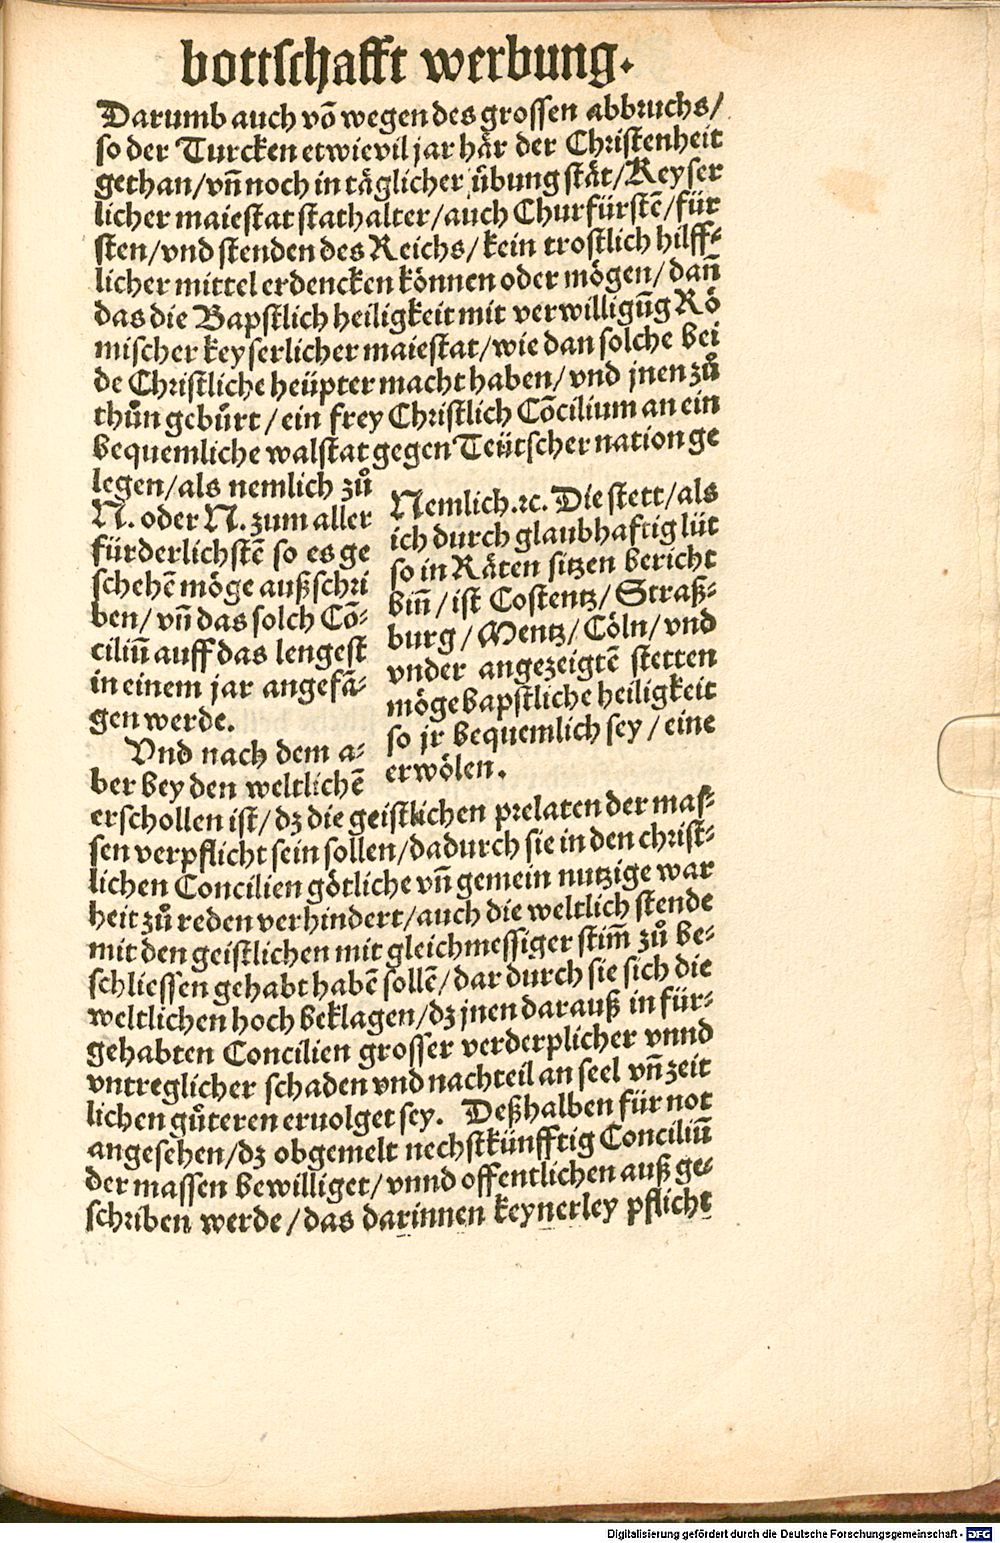 bottschafft werbung.
Darumb auch võ wegen des grossen abbruchs/
so der Turcken etwievil jar här der Christenheit
gethan/vñ noch in täglicher übung stät/Keyser
licher maiestat stathalter/auch Churfürstẽ/für
sten/vnd stenden des Reichs/kein trostlich hilff⸗
licher mittel erdencken können oder mögen/dañ
das die Bapstlich heiligkeit mit verwilligũg Rö
mischer keyserlicher maiestat/wie dan solche bei
de Christliche heüpter macht haben/vnd jnen zů
thůn gebůrt/ein frey Christlich Cõcilium an ein
bequemliche walstat gegen Teütscher nation ge
legen/als nemlich zů
N. oder N. zum aller
fürderlichstẽ so es ge
schehẽ möge außschri
ben/vñ das solch Cõ⸗
ciliũ auff das lengest
in einem jar angefã⸗
gen werde.
Vnd nach dem a⸗
ber bey den weltlichẽ
Nemlich.ꝛc. Die stett/als
ich durch glaubhafftig lüt
so in Räten sitzen bericht
biñ/ist Costentz/Straß⸗
burg/Mentz/Cöln/vnd
vnder angezeigtẽ stetten
möge bapstliche heiligkeit
so jr bequemlich sey/eine
erwölen.
erschollen ist/dz die geistlichen prelaten der mas⸗
sen verpflicht sein sollen/dadurch sie in den christ⸗
lichen Concilien götliche vñ gemein nutzige war
heit zů reden verhindert/auch die weltlich stende
mit den geistlichen mit gleichmessiger stim̃ zů be⸗
schliessen gehabt habẽ sollẽ/dar durch sie sich die
weltlichen hoch beklagen/dz jnen darauß in für⸗
gehabten Concilien grosser verderplicher vnnd
vntreglicher schaden vnd nachteil an seel vñ zeit
lichen gůteren eruolget sey. Deßhalben für not
angesehen/dz obgemelt nechstkünfftig Conciliũ
der massen bewilliget/vnnd offentlichen auß ge⸗
schriben werde/das darinnen keynerley pflicht
Digitalisierung gefördert durch die Deutsche Forschungsgemeinschaft - DFG